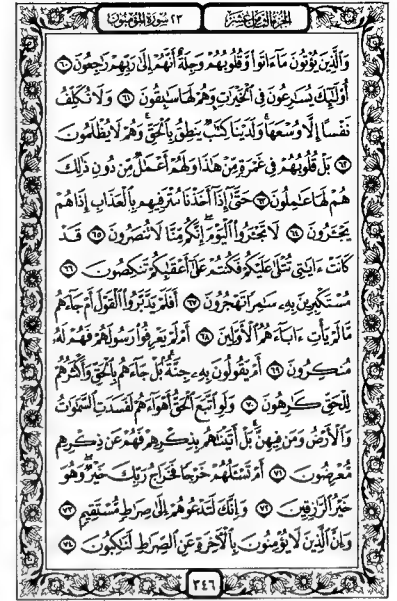 الجزء الثامن عشر
٢٣ سورة المؤمنون
وَٱلَّذِينَ يُؤْتُونَ مَآ ءَاتَوا۟ وَّقُلُوبُهُمْ وَجِلَةٌ أَنَّهُمْ إِلَىٰ رَبِّهِمْ رَٰجِعُونَ ٦٠
أُو۟لَٰٓئِكَ يُسَٰرِعُونَ فِى ٱلْخَيْرَٰتِ وَهُمْ لَهَا سَٰبِقُونَ ٦١ وَلَا نُكَلِّفُ
نَفْسًا إِلَّا وُسْعَهَا وَلَدَيْنَا كِتَٰبٌ يَنطِقُ بِٱلْحَقِّ وَهُمْ لَا يُظْلَمُونَ
٦٢ بَلْ قُلُوبُهُمْ فِى غَمْرَةٍ مِّنْ هَٰذَا وَلَهُمْ أَعْمَٰلٌ مِّن دُونِ ذَٰلِكَ
هُمْ لَهَا عَٰمِلُونَ ٦٣ حَتَّىٰٓ إِذَآ أَخَذْنَا مُتْرَفِيهِم بِٱلْعَذَابِ إِذَا هُمْ
يَجْـَٔرُونَ ٦٤ لَا تَجْـَٔرُوا۟ ٱلْيَوْمَ إِنَّكُم مِّنَّا لَا تُنصَرُونَ ٦٥ قَدْ
كَانَتْ ءَايَٰتِى تُتْلَىٰ عَلَيْكُمْ فَكُنتُمْ عَلَىٰٓ أَعْقَٰبِكُمْ تَنكِصُونَ ٦٦
مُسْتَكْبِرِينَ بِهِۦ سَٰمِرًا تَهْجُرُونَ ٦٧ أَفَلَمْ يَدَّبَّرُوا۟ ٱلْقَوْلَ أَمْ جَآءَهُم
مَّا لَمْ يَأْتِ ءَابَآءَهُمُ ٱلْأَوَّلِينَ ٦٨ أَمْ لَمْ يَعْرِفُوا۟ رَسُولَهُمْ فَهُمْ لَهُۥ
مُنكِرُونَ ٦٩ أَمْ يَقُولُونَ بِهِۦ جِنَّةٌۢ بَلْ جَآءَهُم بِٱلْحَقِّ وَأَكْثَرُهُمْ
لِلْحَقِّ كَٰرِهُونَ ٧٠ وَلَوِ ٱتَّبَعَ ٱلْحَقُّ أَهْوَآءَهُمْ لَفَسَدَتِ ٱلسَّمَٰوَٰتُ
وَٱلْأَرْضُ وَمَن فِيهِنَّ بَلْ أَتَيْنَٰهُم بِذِكْرِهِمْ فَهُمْ عَن ذِكْرِهِم
مُّعْرِضُونَ ٧١ أَمْ تَسْـَٔلُهُمْ خَرْجًا فَخَرَاجُ رَبِّكَ خَيْرٌ وَهُوَ
خَيْرُ ٱلرَّٰزِقِينَ ٧٢ وَإِنَّكَ لَتَدْعُوهُمْ إِلَىٰ صِرَٰطٍ مُّسْتَقِيمٍ ٧٣
وَإِنَّ ٱلَّذِينَ لَا يُؤْمِنُونَ بِٱلْءَاخِرَةِ عَنِ ٱلصِّرَٰطِ لَنَٰكِبُونَ ٧٤
٣٤٦